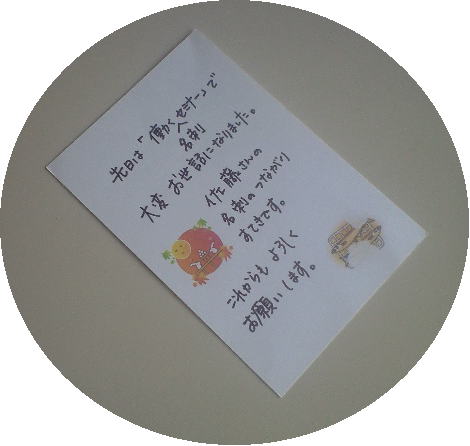 先日は「働く人セミナー」で
名刺
大変お世話になりました。
佐藤さんの
名刺のつながり
すてきです。
これからもよろしく
お願いします。